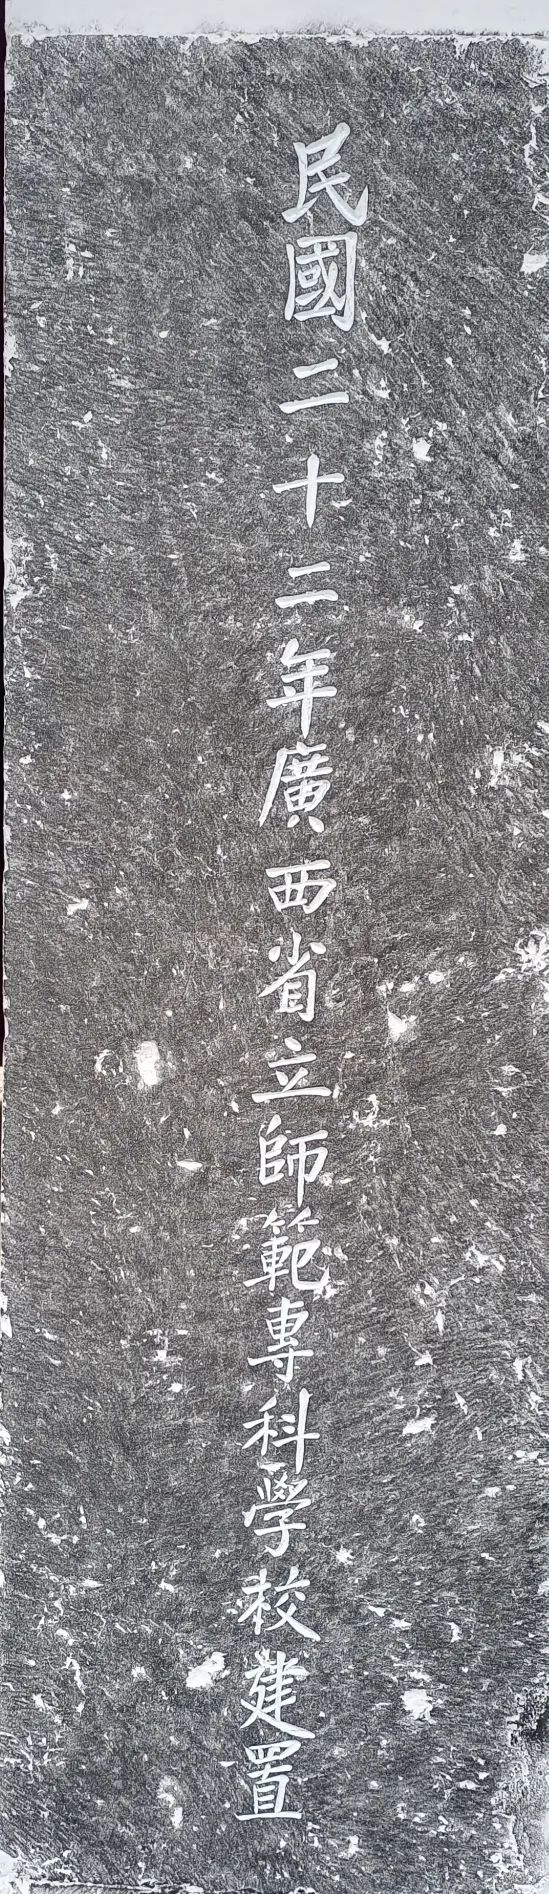 民國二十二年廣西省立師範專科學校建置